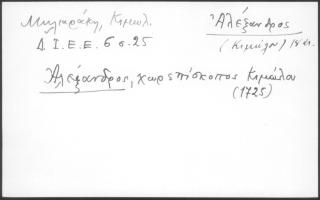 Μηλιαράκη, Κιμωλ.
Δ.Ι.Ε.Ε. 6 σ. 25
Ἀλέξανδρος
(Κιμώλου) 18 αι.
Ἀλέξανδρος, χωρεπίσκοπος Κιμώλου
(1725)